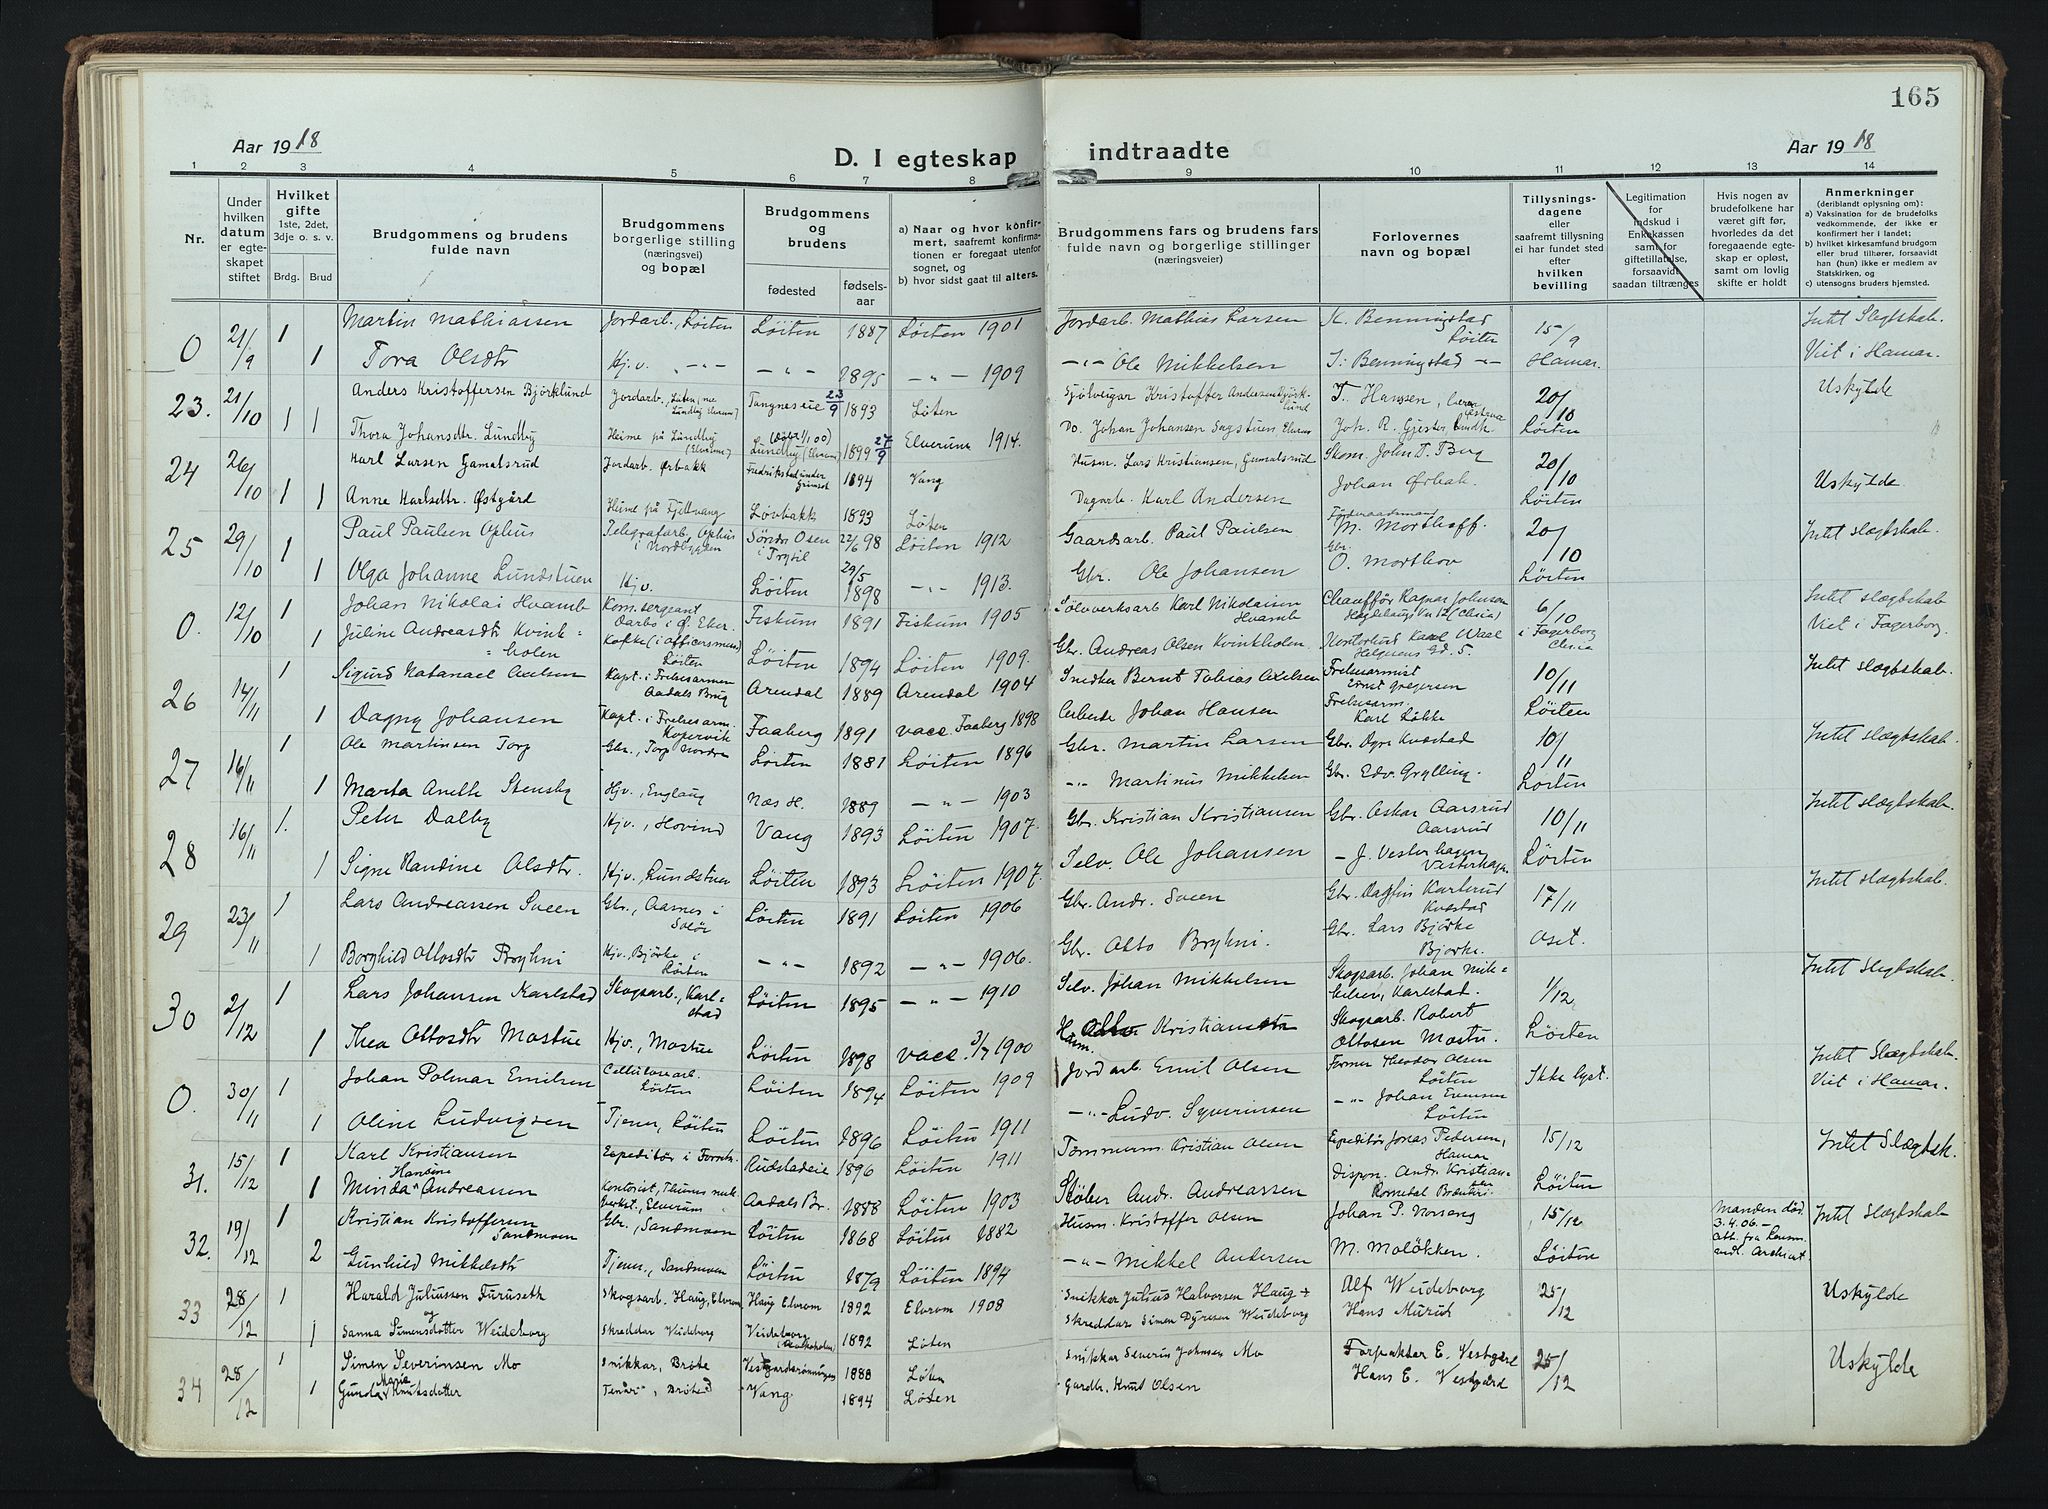 165
Aar 1918
D. I egteskap indtraadte
Aar 1918
1 2 3 4 5 6 7 8 9 10 11 12 13 14
Nr.
Under hvilken datum er egteskapet stiftet
Hvilket gifte 1ste, 2det, 3dje o. s. v.
Brdg. Brud
Brudgommens og brudens fulde navn
Brudgommens borgerlige stilling (næringsvei) og bopæl
Brudgommens og brudens
fødested
fødselsaar
a) Naar og hvor konfirmert, saafremt konfirmationen er foregaat utenfor sognet, og
b) hvor sidst gaat til alters.
Brudgommens fars og brudens fars fulde navn og borgerlige stillinger (næringsveier)
Forlovernes navn og bopæl
Tillysningsdagene eller saafremt tillysning ei har fundet sted efter hvilken bevilling
Legitimation for indskud i Enkekassen samt for giftetillatelse, forsaavidt saadan tiltrænges
Hvis nogen av brudefolkene har været gift før, hvorledes da det foregaaende egteskap er opløst, samt om lovlig skifte er holdt
Anmerkninger (deriblandt oplysning om):
a) Vaksination for de brudefolks vedkommende, der ikke er konfirmert her i landet;
b) hvilket kirkesamfund brudgom eller brud tilhører, forsaavidt han (hun) ikke er medlem av Statskirken, og
c) utensogns bruders hjemsted.
0 21/9 1 Martin Mathiassen Jordarb., Løiten Løiten 1887 Løiten 1901 Jordarb. Mathias Larsen K. Benningstad Løiten 15/9 Intet Slegtskab.
1 Tora Olsdtr Hj.v. —"— —"— 1895 —"— 1909 —"— Ole Mikkelsen I. Benningstad —"— Hamar. Viet i Hamar.
23. 21/10 1 Anders Kristoffersen Bjørklund Jordarb. Tangnes 23/9 1893 Løten Sjølveigar Kristoffer Andersen Bjørklund T. Hansen, 20/10 Uskylde
1 Thora Johansdtr. Lundby Heime på Lundby (Elverum) Lundby (Elverum) 1899 27/9 Elverum 1914. Do. Johan Johansen Sagstuen Elverum Joh. R. Løiten
24 26/10 1 Karl Larsen Gamalsrud Jordarb. Ørbakk 1894 Vang Husm. Lars Kristiansen, Gamalsrud Skom. John T. Berg 20/10 Uskylde
1 Anne Karlsdtr. Østgård Heime på Fjellvang Løvbakk 1893 Løten Dagarb. Karl Andersen Johan Ørbak. Løiten
25 29/10 1 Paul Paulsen Ophus Telegrafarb., Ophus i Nordbygden Søndre Osen i Trysil 22/6 98 Løiten 1912 Gaardsarb. Paul Paulsen Føderaadsmand M. Morthoff. 20/10 Intet slegtskab.
1 Olga Johanne Lundstuen Hjv. Løiten 29/5 1898 —"— 1913. Gbr. Ole Johansen Gbr. O. Morthov Løiten
0. 12/10 1 Johan Nikolai Hvamb Kom.sergeant Fiskum 1891 Fiskum 1905 Sølvverksarb Karl Nikolaisen Hvamb Chauffør Ragnar Johnsen 6/10 Intet slegtskab
1 Juline Andreasdtr Kvinkholen Løiten Løiten 1894 Løiten 1909. Gbr. Andreas Olsen Kvinkholen. Helgesens Gd. 5. i Fagerborg Viet i Fagerborg.
26 14/11 1 Sigurd Natanael Axelsen Kapt. i Frelsesarmen Aadals Brug Arendal 1889 Arendal 1904 Snedker Bernt Tobias Axelsen Frelsesarmist Ernst Gregersen 10/11 Intet slegtskab.
1 Dagny Johansen Kapt. i Frelsesarm. Kopervik Faaberg 1891 vacc. Faaberg 1898 Johan Hansen Frelsesarm. Karl Løkke Løiten
27 16/11 1 Ole Martinsen Torp Gbr., Torp Nordre Løiten 1881 Løiten 1896 Gbr. Martin Larsen Gbr. Kvæstad 10/11 Intet slegtskab.
1 Marta Anette Stensby Hjv., Englaug Næs H. 1889 —"— 1903 —"— Martinus Mikkelsen Gbr. Edv. Grylling. Løiten
28 16/11 1. Peter Dalby Hjv., Hovind Vang 1893 Løiten 1907. Gbr. Kristian Kristiansen Gbr. Oskar Aarsrud Aarsrud 10/11 Intet slegtskab.
1 Signe Randine Olsdtr. Hjv., Lundstuen Løiten 1893 Løiten 1907. Selv. Ole Johansen — J. Vesterhagen Vesterhagen. Løiten
29 23/11 1 Lars Andreassen Sveen Gbr., Aasnes i Solør Løiten 1891 Løiten 1906 Gbr. Andr. Sveen Gbr. Dagfin Karterud Kvæstad 17/11 Intet slegtskab.
1 Borghild Ottosdtr Bryhni Hjv., Bjørke i Løiten —"— 1892 —"— 1906. Gbr. Otto Bryhni. Gbr. Lars Bjørke Bjørke. Oset.
30 2/12 1 Lars Johansen Karlstad Skogsarb., Karlstad Løiten 1895 —"— 1910 Selv. Johan Mikkelsen Skogsarb. Johan Mikkelsen, Karlstad. 1/12 Intet Slegtskab.
1 Thea Ottosdtr Mostue Hjv., Mostue Løiten 1898 vacc. 3/7 1900 Husm. Otto Kristiansen Skogsarb. Robert Ottosen Mostu. Løiten
0. 30/11 1 Johan Polmar Emilsen Cellulosearb. Løiten Løiten 1894 Løiten 1909 Jordarb Emil Olsen Former Theodor Olsen Løiten Ikke lyst. Intet Slegtskab.
1 Oline Ludvigsen Tjener, Løiten Løiten 1896 Løiten 1911 —"— Ludv. Syverinsen —"— Johan Evensen Løiten Viet i Hamar.
31. 15/12 1 Karl Kristiansen Expeditør i Rudstadeie 1896 Løiten 1911 Tømmerm. Kristian Olsen Expeditør Jonas Pedersen, Hamar 15/12 Intet Slægtsk.
1 Minda Hansine Andreassen Kontorist, Elverum Aadals Br. 1888 Løiten 1903 Støber Andr. Andreassen Dispon. Andr. Kristiansen Løiten
32. 19/12 1 Kristian Kristoffersen Sandmoen Gbr., Sandmoen Løiten 1868 Løiten 1882 Husm. Kristoffer Olsen Johan P. Norseng 15/12 Manden død 3.4.06. — Att. fra Lensm. Intet Slegtskab
2 Gunhild Mikkelsdtr Tjener, Sandmoen Løiten 1879 Løiten 1894 —"— Mikkel Andersen M. Moløkken. Løiten
33 28/12 1 Harald Juliussen Furuseth og Skogsarb. Haug, Elvrom Haug Elvrom 1892 Elvrom 1908 Snikkar Julius Halvorsen Haug + Alf Weideborg 25/12 Uskylde
1 Sanna Simensdotter Weideborg Skreddar Veideborg Veideborg 1892 Løten Skreddar Simen Dyresen Weideborg Hans Murud
34 28/12 1 Simen Severinsen Mo Snikkar, Brøte 1888 Løten Snikkar Severin Johnsen Mo Forpakter E. Vestgård 25/12 Uskylde
1 Gunda Marie Knutsdotter Vang 1894 Løten Gardbr. Knut Olsen Hans E. Vestgård